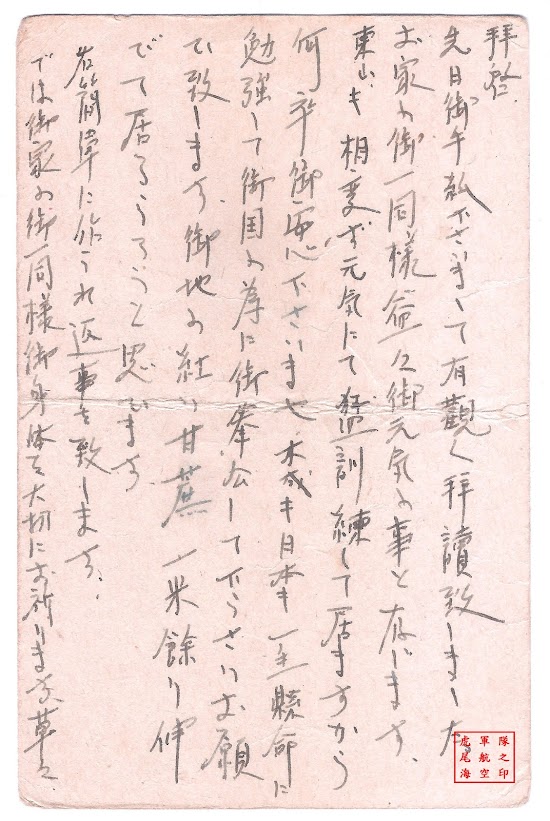 拝啓
先日御手紙下さいまして有難く拝讀致しました
お家の御一同様益々御元気の事と存じます、
東山も相変ず元気にて猛訓練して居ますから
何卒御安心下さいませ、 も日本 一生懸命に
勉強して御国の為に御奉公して下さいお願
い致します、御地の 甘蔗 一米餘り伸
びて居るらうと思ひます、
右簡単に 返事を致します、
では御家の御一同様御身体を大切にお祈ります、草々
虎尾海軍航空隊之印